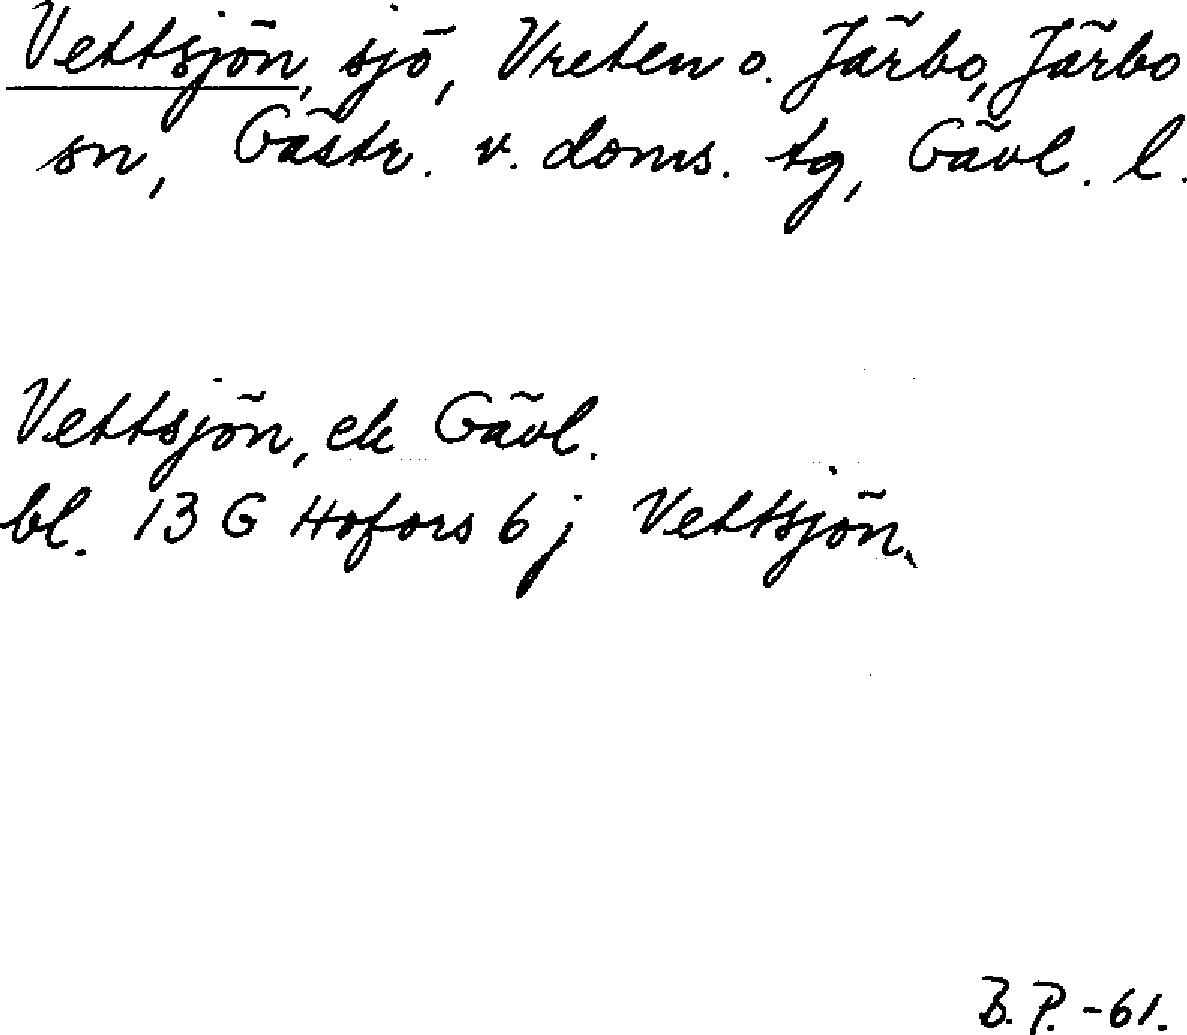 Vettsjön, sjö, Vreten o. Järbo, Järbo
sn, Gästr. v. doms. tg, Gävl. l.
Vettsjön, ek Gävl.
bl. 13 G Hofors 6 j Vettsjön.
B. P. -61.